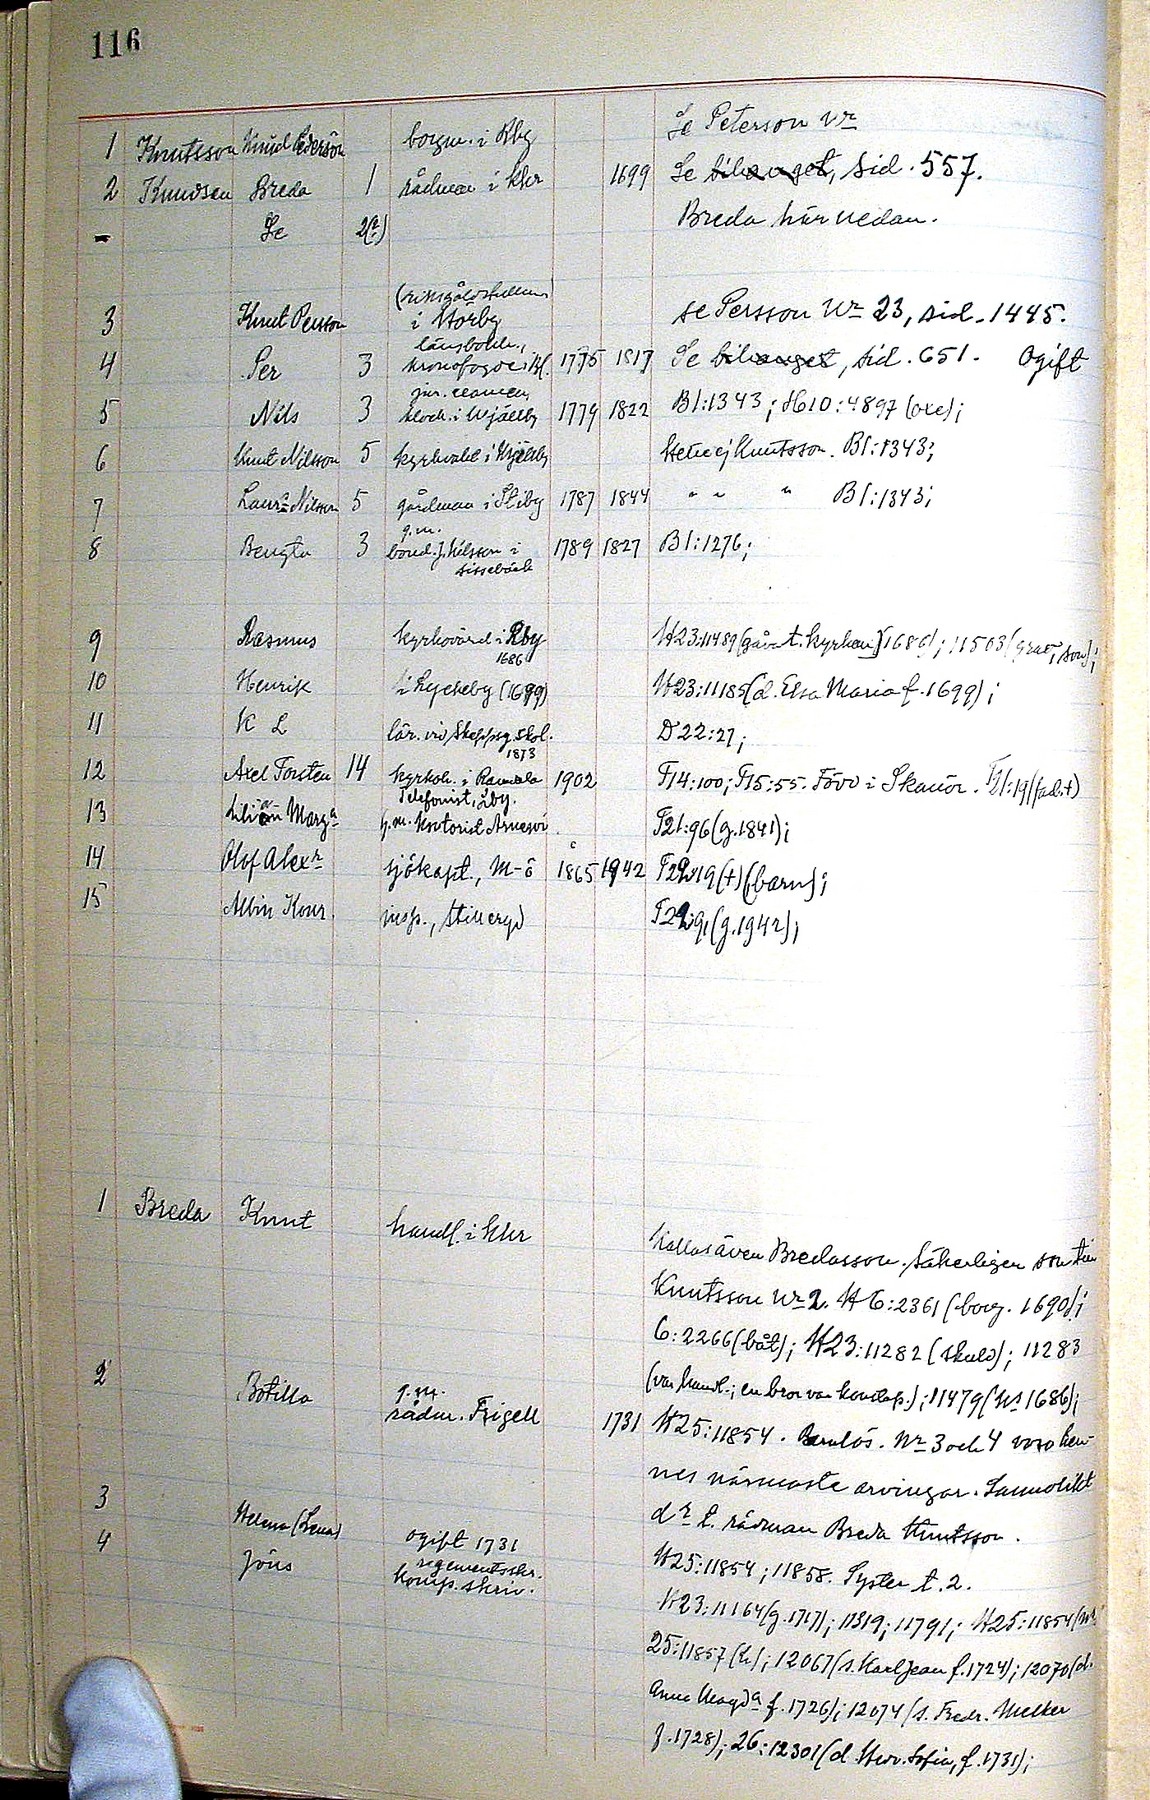 116
1 Knutsson Knud Pedersön borgm. i Rby Se Peterson Nr
2 Knudsen Breda 1 rådman i Khr 1699 Se bihanget, sid. 557.
- Se 2(a) Breda här nedan.
3 Knut Persson i Torby se Persson Nr 23, sid. 1445.
länsbokh.,
4 Per 3 kronofogde i Bl. 1775 1817 Se bihanget, sid. 651. Ogift
5 Nils 3 klock. i Mjällby 1779 1822 Bl:1343; H10:4897 (oxe);
6 Knut Nilsson 5 kyrkvakt i Mjällby Hette ej Knutsson. Bl:1343;
7 Laurs Nilsson 5 gårdman i Stiby 1787 1844 " " " Bl:1343;
g.m.
8 Bengta 3 bond. J. Nilsson i 1789 1827 Bl:1276;
Sissebäck
9 Rasmus kyrkovärd i Rby H23:11489 (gåva t. kyrkan 1686); 11503 (grav, son);
1686
10 Henrik i Lyckeby (1699) H23:11185 (d. Elsa Maria f. 1699);
11 K L lär. vid Skeppsg.skol. D22:27;
1873
12 Axel Torsten 14 kyrkoh. i Ramdala 1902 F14:100; F15:55. Född i Skanör. F21:19 (fad. +)
Telefonist, Åby.
13 Lilian Marga g.m. kontorist Arnesson F21:96 (g. 1841);
14 Olof Alexr sjökapt., M-ö 1865 1942 F29:19 (+) (barn);
15 Albin Konr. insp., Stilleryd F29:91 (g. 1942);
1 Breda Knut handl. i Khr
Kallas även Bredasson. Säkerligen son till
Knutsson Nr 2. H6:2361 (borg. 1690);
6:2266 (båt); H23:11282 (skuld); 11283
(var handl.; en bror var kondap.); 11479 (hus 1686);
2 Botilla g.m.
rådm. Frigell 1731 H25:11854. Barnlös. Nr 3 och 4 voro hen-
nes närmaste arvingar. Sannolikt
dr t. rådman Breda Knutsson.
3 Helena (Lena) ogift 1731
H25:11854; 11858. Syster t. 2.
4 Jöns regementsskr.
komp. skriv.
H23:11164 (g. 1717); 11319; 11791; H25:11854
25:11857 (h); 12067 (s. Karl Jean f. 1724); 12070 (d.
Anna Magda f. 1726); 12074 (s. Fredr. Melker
f. 1728); 26:12301 (d. Hedv. Sofia, f. 1731);